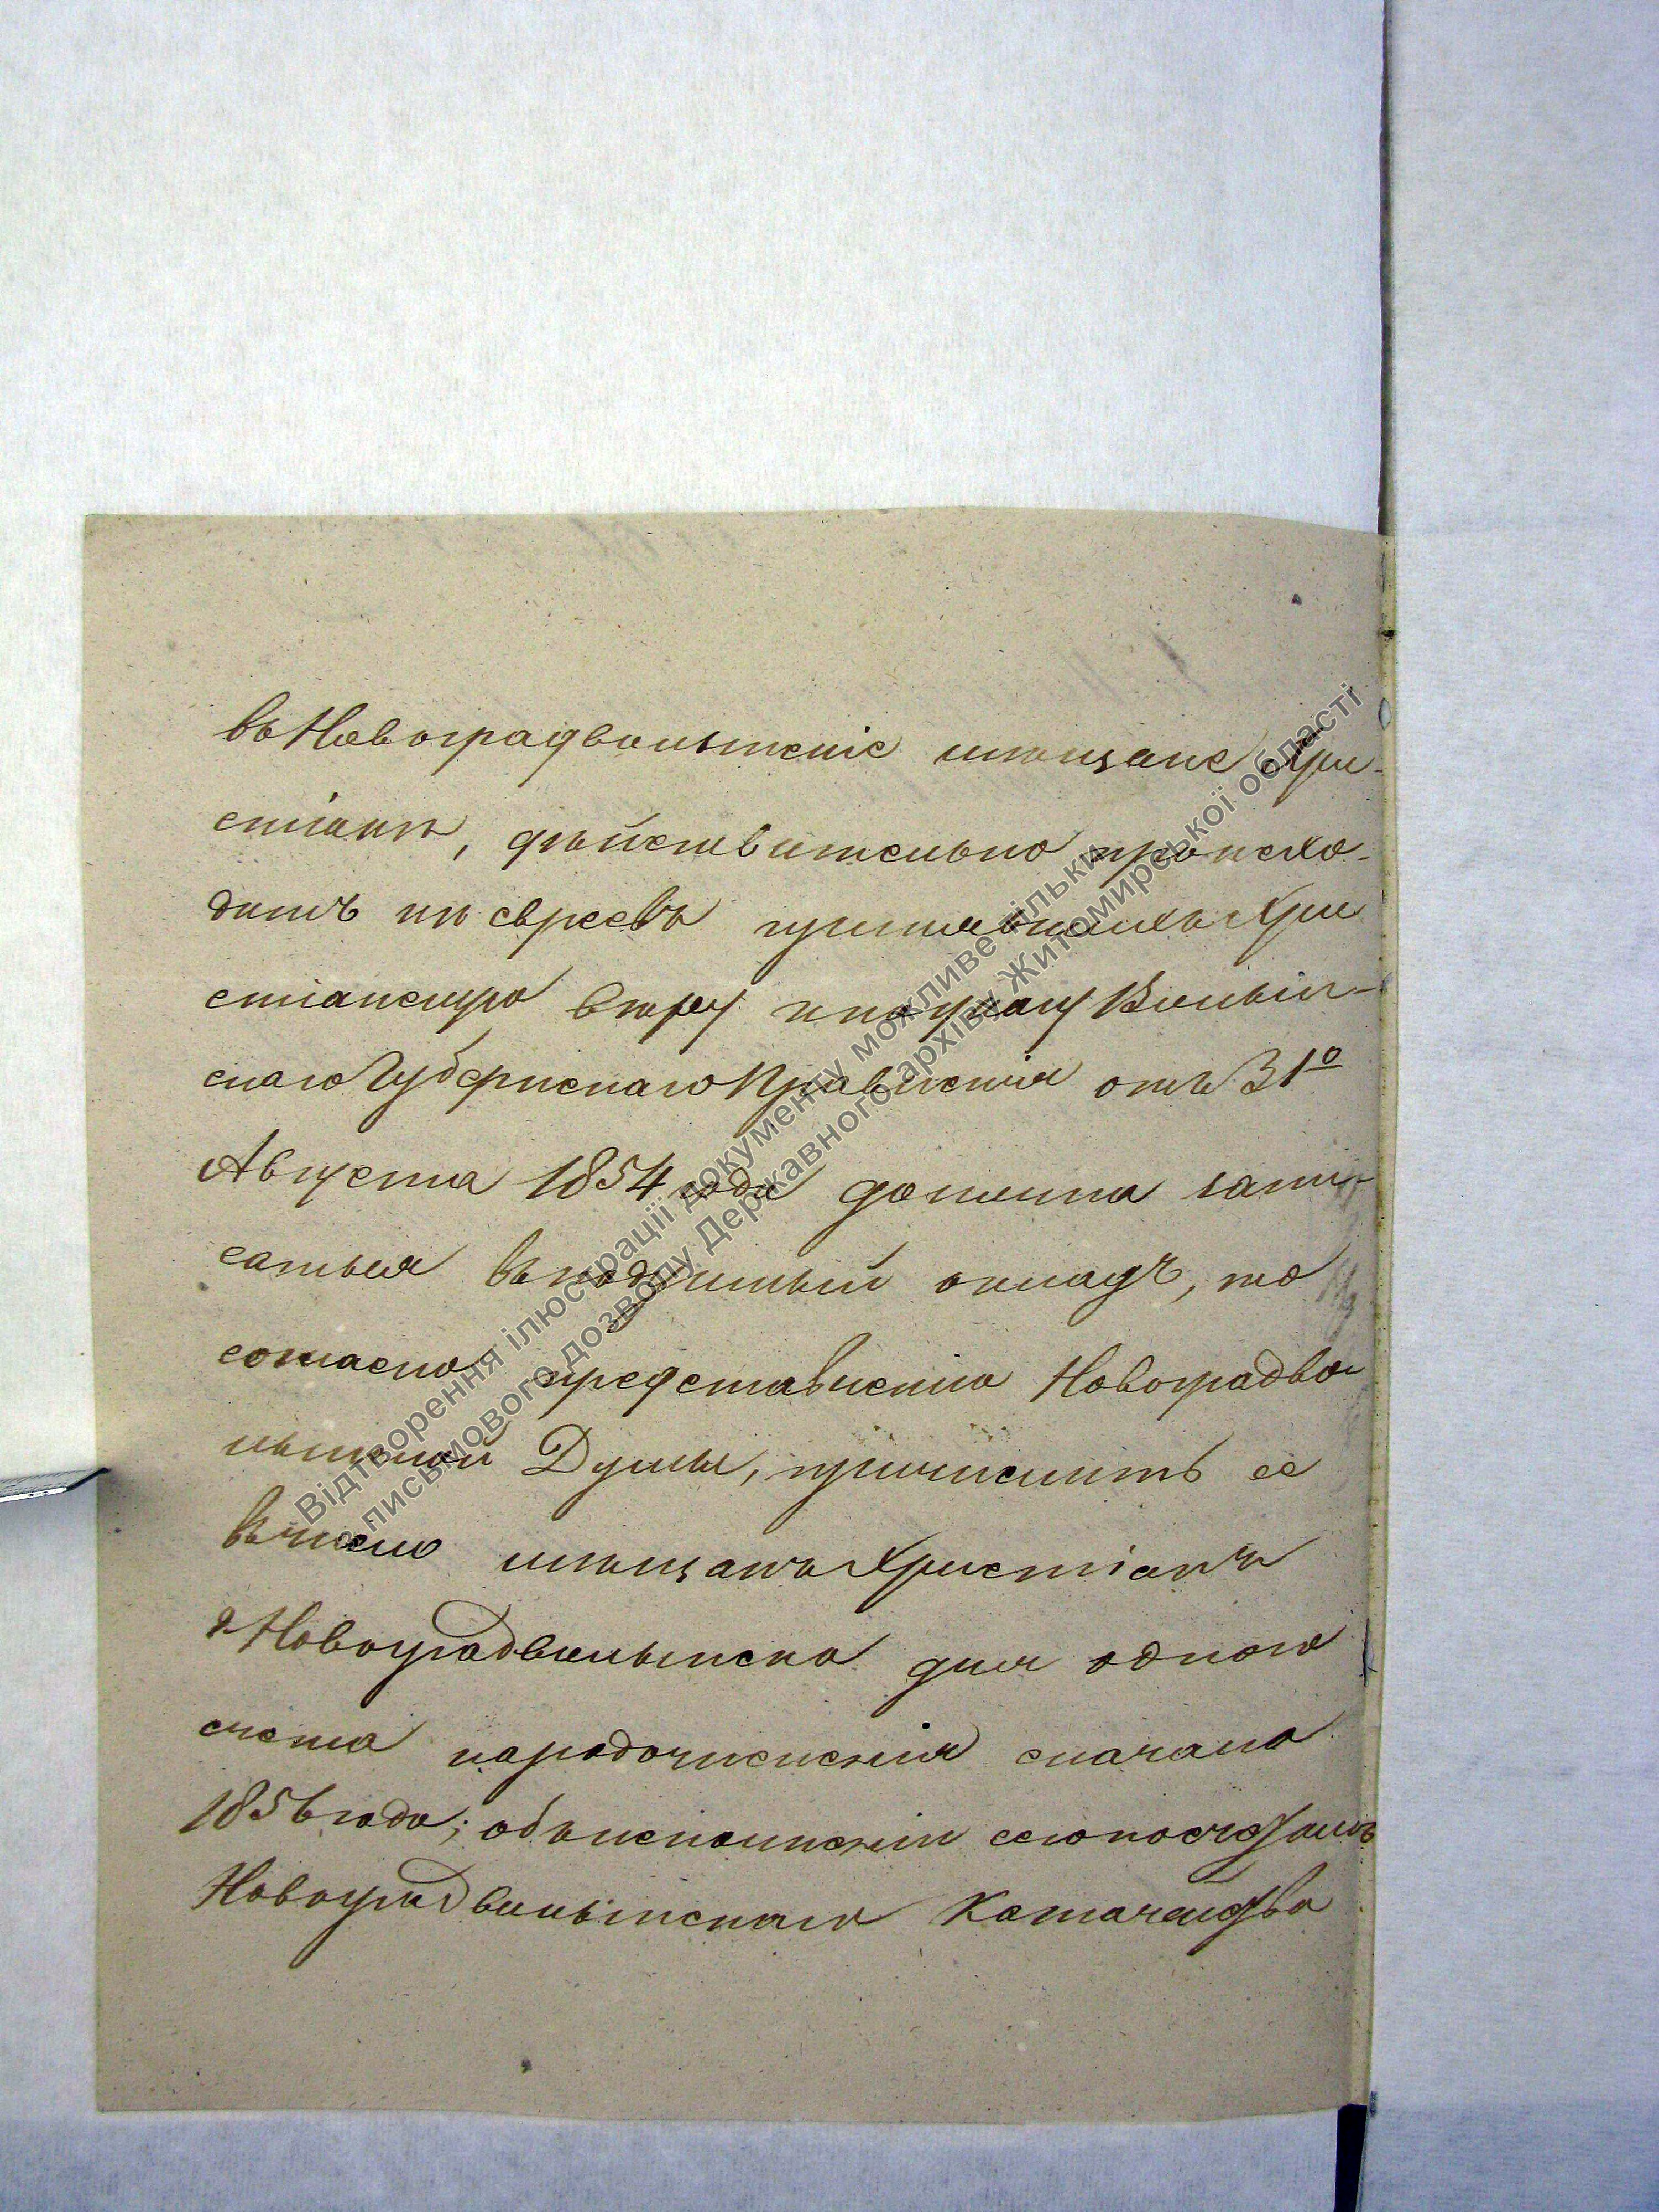 въ Новоградволынскіе мѣщане Хри-
стіанъ, дѣйствительно происхо-
дитъ изъ евреевъ принявшихъ Хри
стіанскую вѣру и по указу Волын-
скаго Губернскаго Правленія отъ 31го
Августа 1854 года должна запи-
саться въ подушный окладъ, то
согласно представленію Новоградво
лынской Думы, причислить ее
въ число мѣщанъ Христіанъ
г Новоградволынска для одного
счета народочисленія сначала
1856 года; объ исполненіи сего по
Новоградволынскаго Казначейства
Відтворення ілюстрації документу можливе тільки
з письмового дозволу Державного архіву Житомирської області